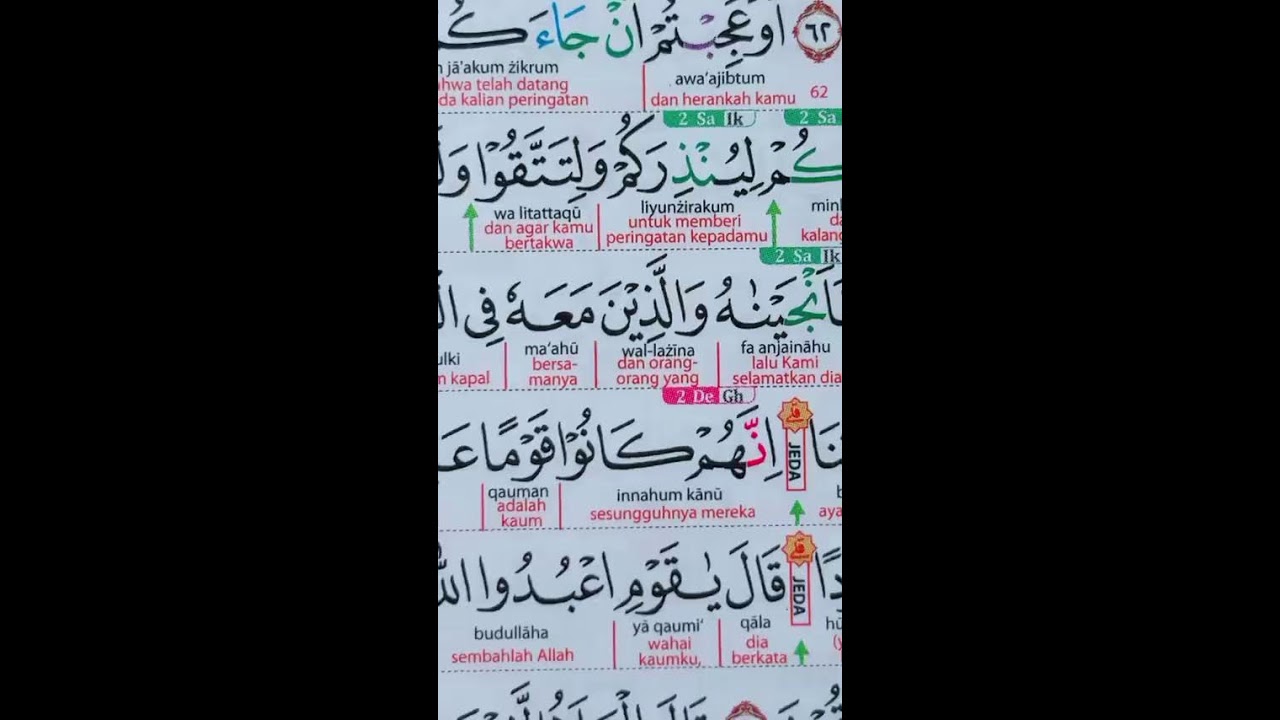 ٦٢ اَوَعَجِبْتُمْ اَنْ جَاۤءَكُ
awa‘ajibtum
jā'akum żikrum
62
dan herankah kamu
hwa telah datang
da kalian peringatan
2 Sa Ik
2 Sa
كُمْ لِيُنْذِرَكُمْ وَلِتَتَّقُوْا وَلَ
liyunżirakum
wa litattaqū
untuk memberi
peringatan kepadamu
dan agar kamu
bertakwa
kalang
2 Sa Ik
اَنْجَيْنٰهُ وَالَّذِيْنَ مَعَهٗ فِى
fa anjaināhu
wal-lażīna
ma‘ahū
ulki
lalu Kami
selamatkan dia
dan orang-
orang yang
bersa-
manya
n kapal
2 De Gh
نَا JEDA اِنَّهُمْ كَانُوْا قَوْمًا عَ
innahum kānū
qauman
sesungguhnya mereka
adalah
kaum
aya
دًا JEDA قَالَ يٰقَوْمِ اعْبُدُوا اللّٰ
qāla
yā qaumi‘
budullāha
dia
berkata
wahai
kaumku,
sembahlah Allah